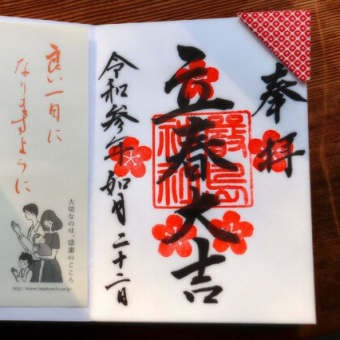 奉拝
立春大吉
厳島神社
令和参年如月二十二日
良い一日に
なりますように
大切なのは、感謝のこころ